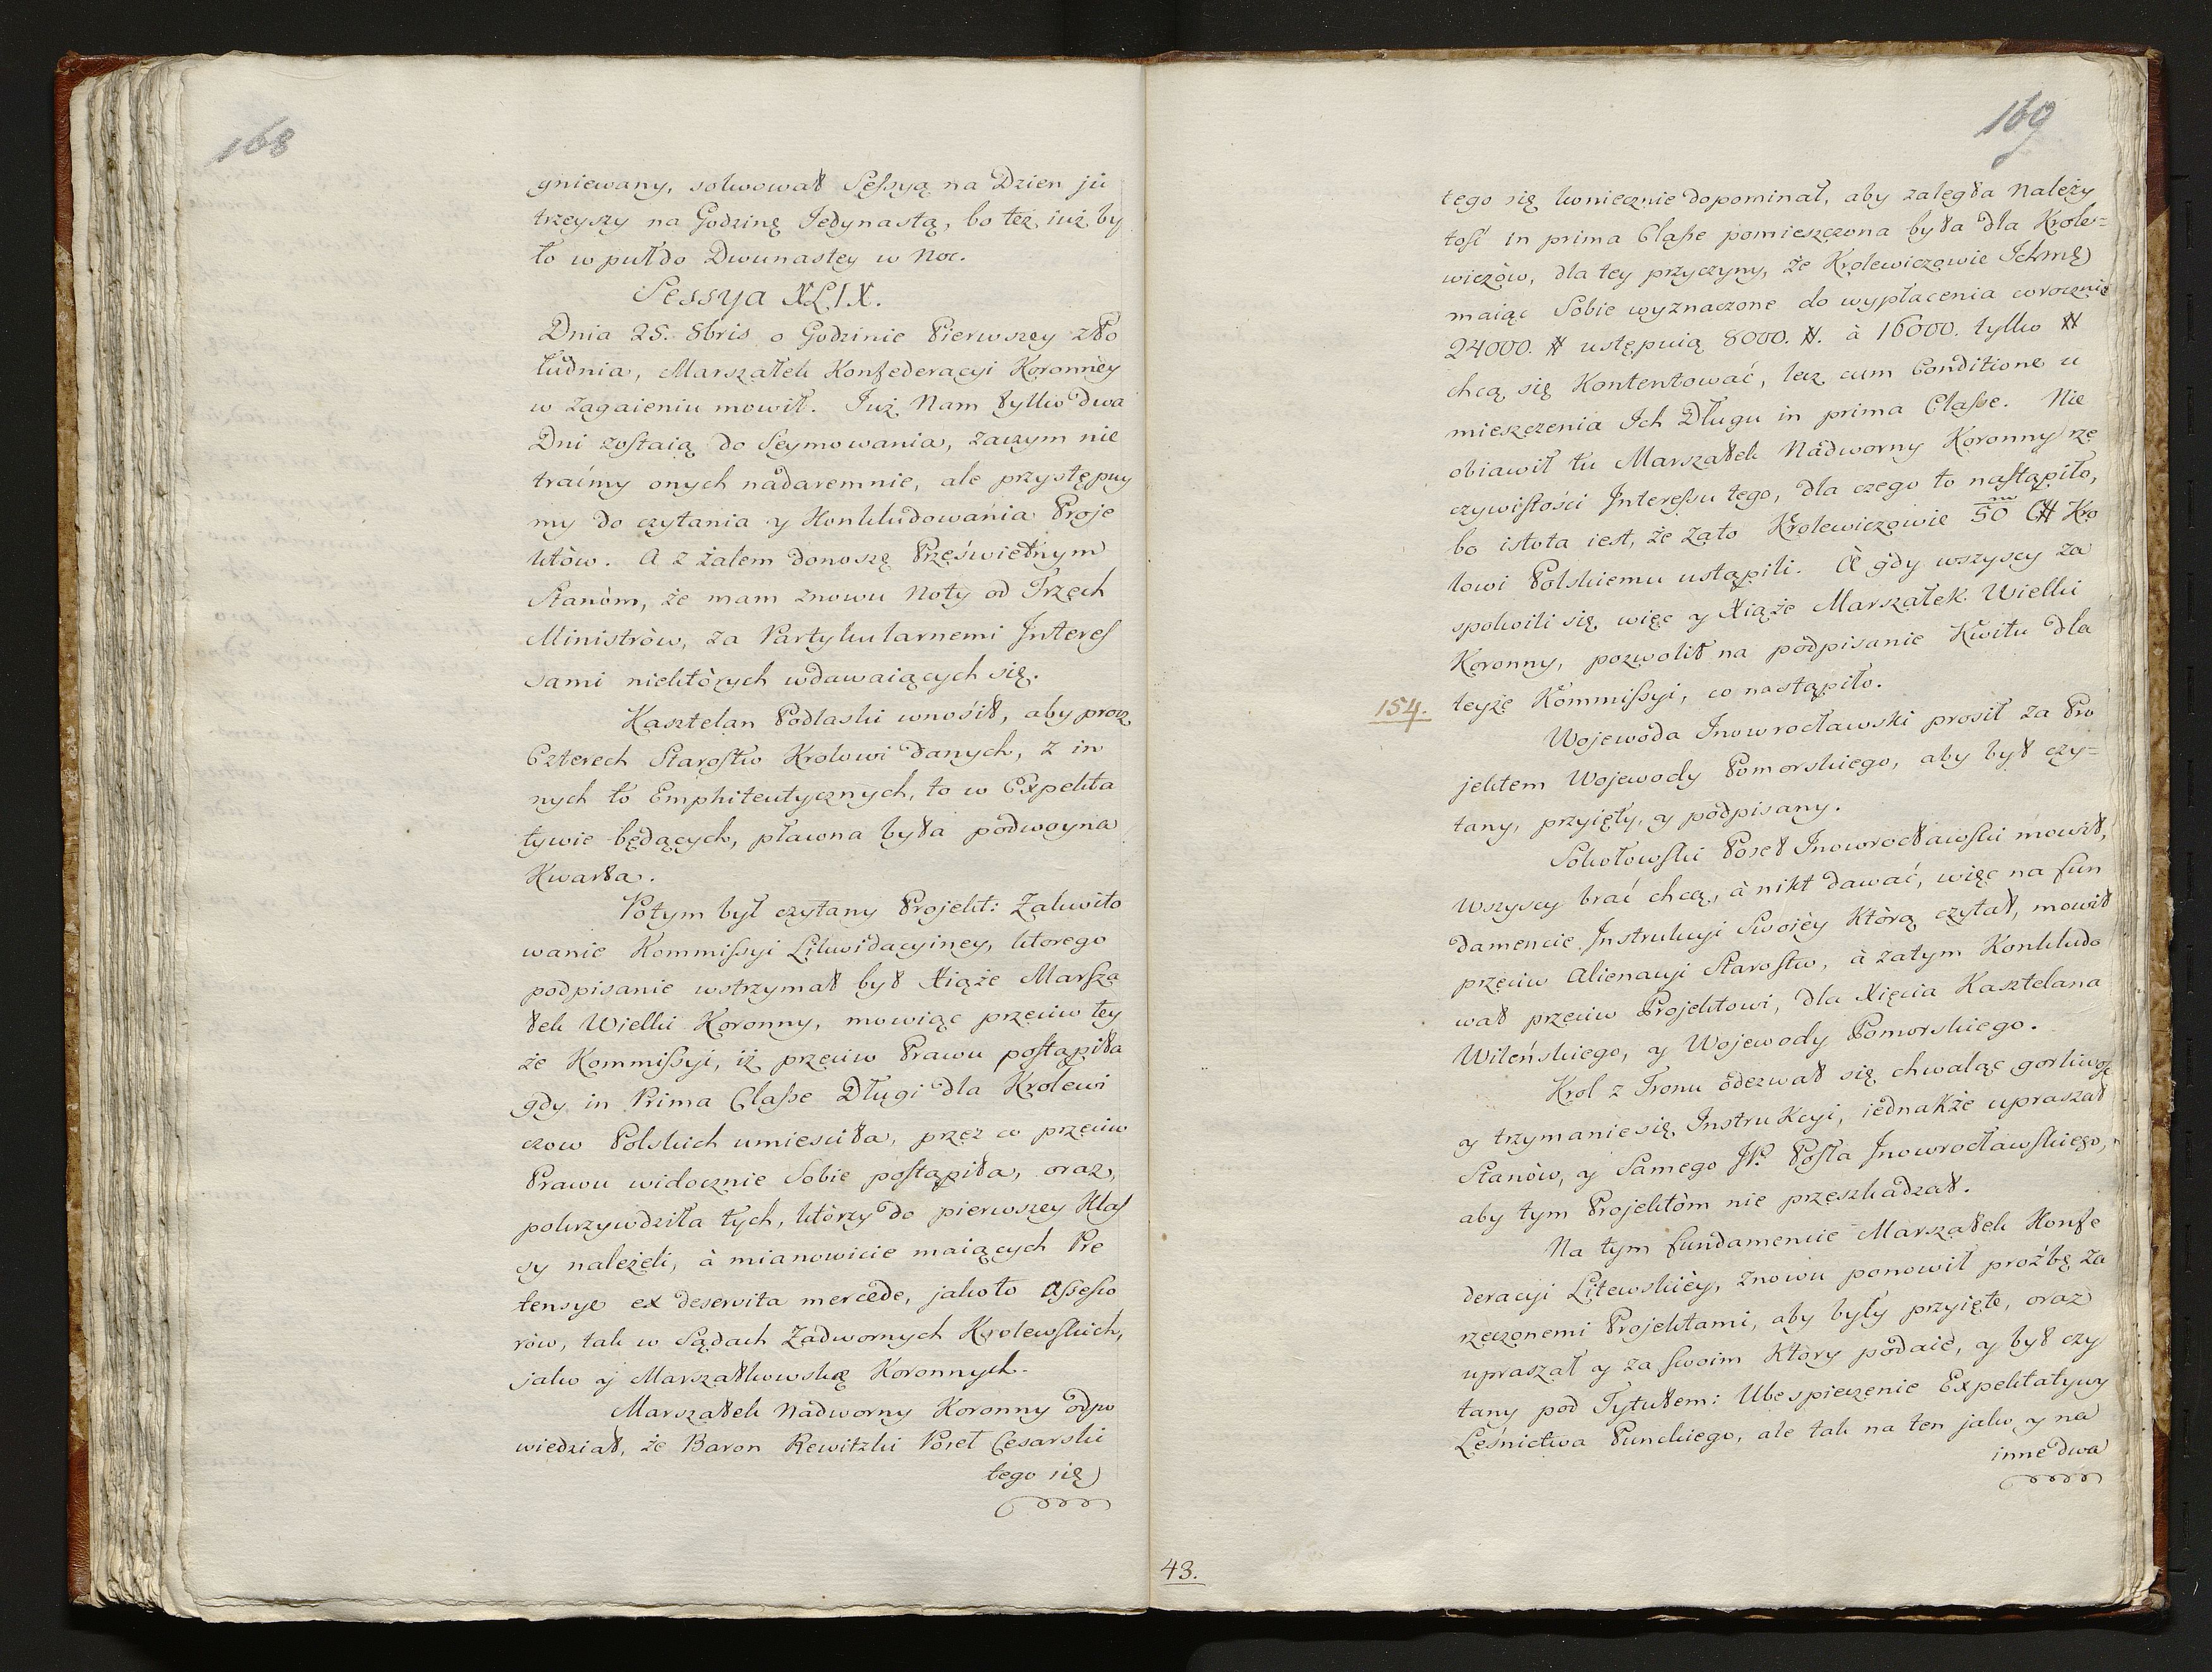 168
gniewany, solwował Sessyą na Dzien ju
trzeyszy na Godzinę Jedynastą, bo też iuż by
ło w puł do Dwunastey w Noc.
Sessya XLIX.
Dnia 25. 8bris o Godzinie Pierwszey z Po
łudnia, Marszałek Konfederacyi Koronney
w Zagaieniu mowił. Już Nam tylko dwa
Dni zostaią do Seymowania, zaczym nie
traćmy onych nadaremnie, ale przystępuy
my do czytania y Konkludowania Proje
któw. A z żalem donoszę Prześwietnym
Stanòm, że mam znowu Noty od Trzech
Ministròw, za Partykularnemi Interes
sami niektòrych wdawaiących się.
Kasztelan Podlaski wnosił, aby procz
Czterech Starostw Krolowi danych, z in
nych to Emphiteutycznych, to w Expekta
tywie będących, płacona była podwoyna
Kwarta.
Potym był czytany Projekt: Zakwito
wanie Kommissyi Likwidacyiney, ktorego
podpisanie wstrzymał był Xiąże Marsza
łek Wielki Koronny, mowiąc przeciw tey
że Kommissyi, iż przeciw Prawu postąpiła
gdy in Prima Classe Długi dla Krolewi
czow Polskich umiesciła, przez co przeciw
Prawu widocznie Sobie postąpiła, oraz,
pokrzywdziła tych, ktòrzy do pierwszey Klas
sy należeli, à mianowicie maiących Pre
tensye ex deservita mercede, jako to Assesso
ròw, tak w Sądach Zadwornych Krolewskich,
jako y Marszałkowskię Koronnych.
Marszałek Nadworny Koronny odpo
wiedział, że Baron Rewitzki Poseł Cesarski
tego się
169
tego się koniecznie dopominał, aby zaległa Należy
tość in prima Classe pomieszczona była dla Krole=
wiczòw, dla tey przyczyny, że Krolewiczowie Ichmę
maiąc Sobie wyznaczone do wypłacenia corocznie
24000. # ustępuią 8000. #. à 16000. tylko #
chcą się Kontentować, lecz cum Conditione u
mieszczenia Ich Długu in prima Classe. Nie
obiawił tu Marszałek Nadworny Koronny rze
czywistości Interessu tego, dla czego to nastąpiło,
bo istota iest, że zato Krolewiczowie 50 m C# Kro
lowi Polskiemu ustąpili. A gdy wszyscy za
spokoili się, więc y Xiąże Marszałek Wielki
Koronny, pozwolił na podpisanie Kwitu dla
teyże Kommissyi, co nastąpiło.
154.
Wojewoda Inowrocławski prosił za Pro
jektem Wojewody Pomorskiego, aby był czy=
tany, przyięty, y podpisany.
Sokołowski Poseł Inowrocławski mowił,
Wszyscy brać chcą, à nikt dawać, więc na fun
damencie Instrukcyi Swoiey Ktòrą czytał, mowił
przeciw Alienacyi Starostw, à zatym Konkludo
wał przeciw Projektowi, dla Xięcia Kasztelana
Wileńskiego, y Wojewody Pomorskiego.
Krol z Tronu odezwał się chwaląc gorliwość
y trzymanie się Instrukcyi, iednakże upraszał
Stanòw, y Samego JP. Posła Inowrocławskiego,
aby tym Projektòm nie przeszkadzał.
Na tym fundamencie Marszałek Konfe
deracyi Litewskiey, znowu ponowił proźbę za
rzeczonemi Projektami, aby były przyięte, oraz
upraszał y za swoim Ktòry podaie, y był czy
tany pod Tytułem: Ubespieczenie Expektatywy
Leśnictwa Punskiego, ale tak na ten jako y na
inne dwa
43.